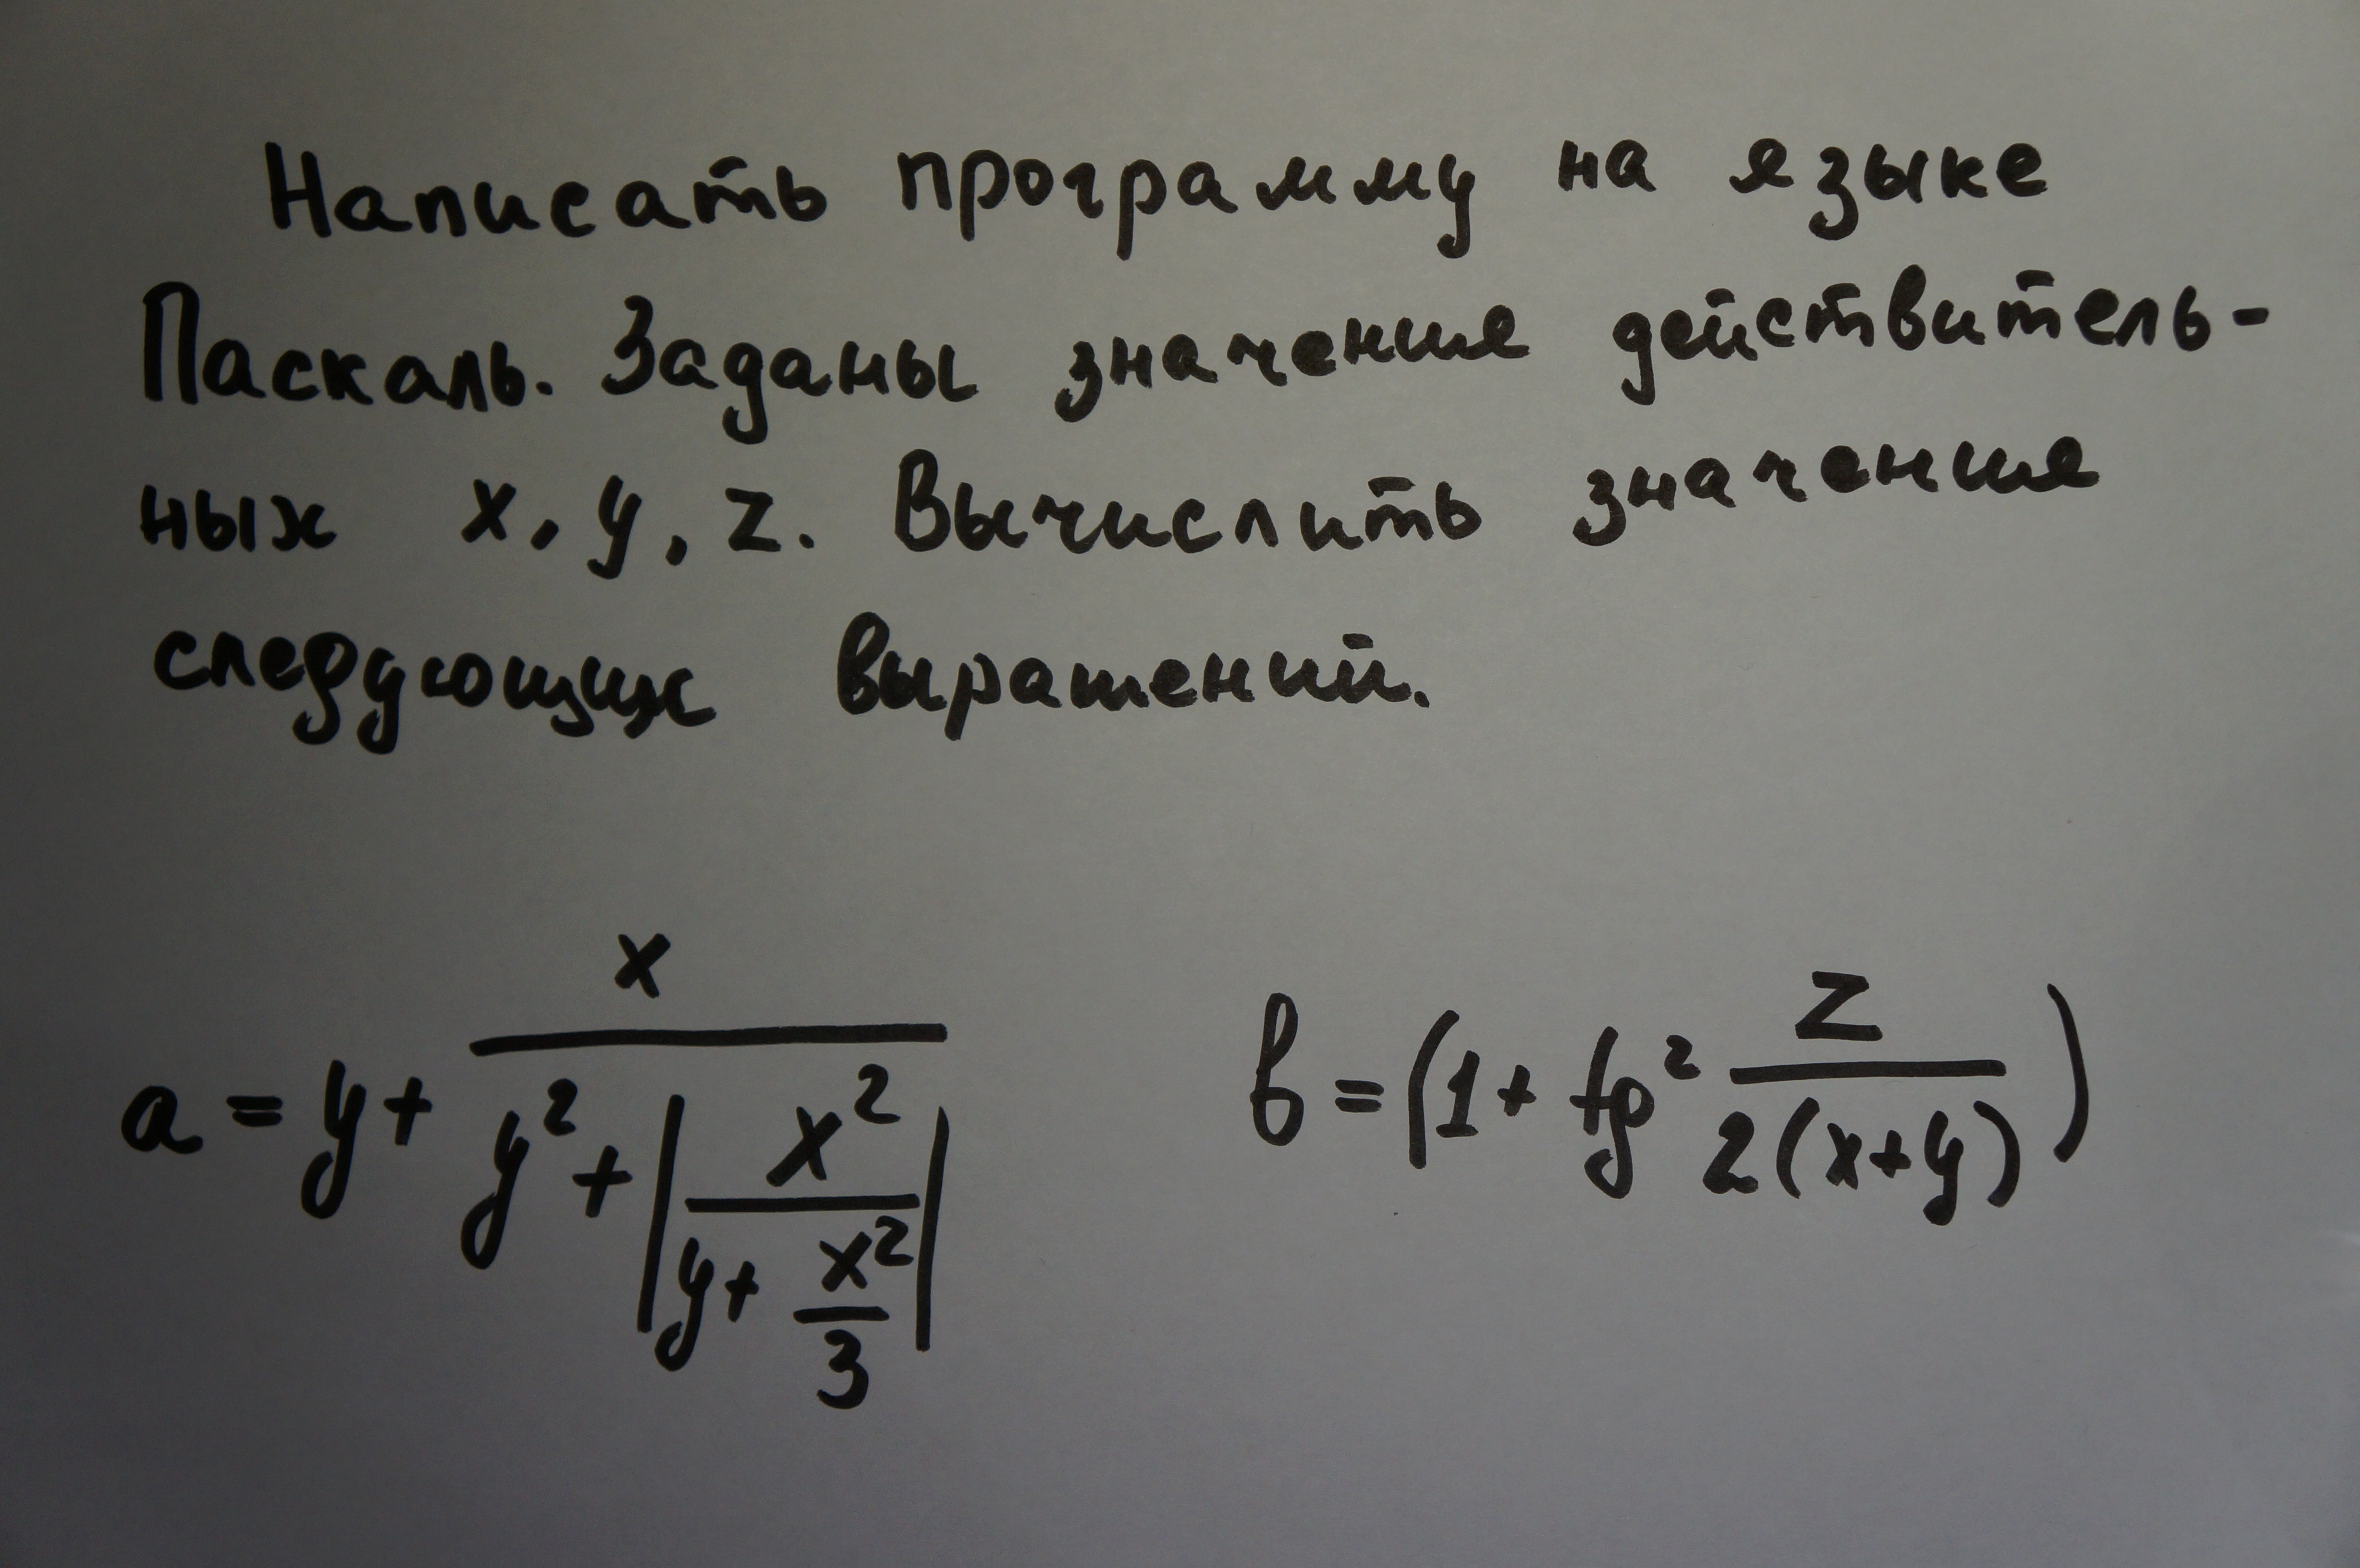 Написать программу на языке
Паскаль. Заданы значение действитель-
ных x, y, z. Вычислить значение
следующих выражений.
a = y + \frac{x}{y^2 + \left| \frac{x^2}{y + \frac{x^2}{3}} \right|}
b = (1 + tg^2 \frac{z}{2(x+y)})